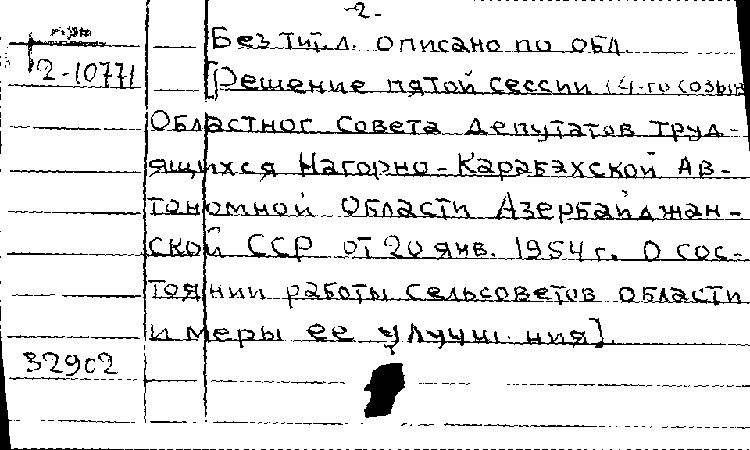 -2-
Без тит. л. описано по обл.
2-10771
[Решение пятой сессии (4-го созыва
Областног Совета депутатов труд-
ящихся Нагорно-Карабахской Ав-
тономной Области Азербайджан-
ской ССР от 20 янв. 1954 г. О сос-
тоянии работы сельсоветов области
и меры ее улучш ния].
32902